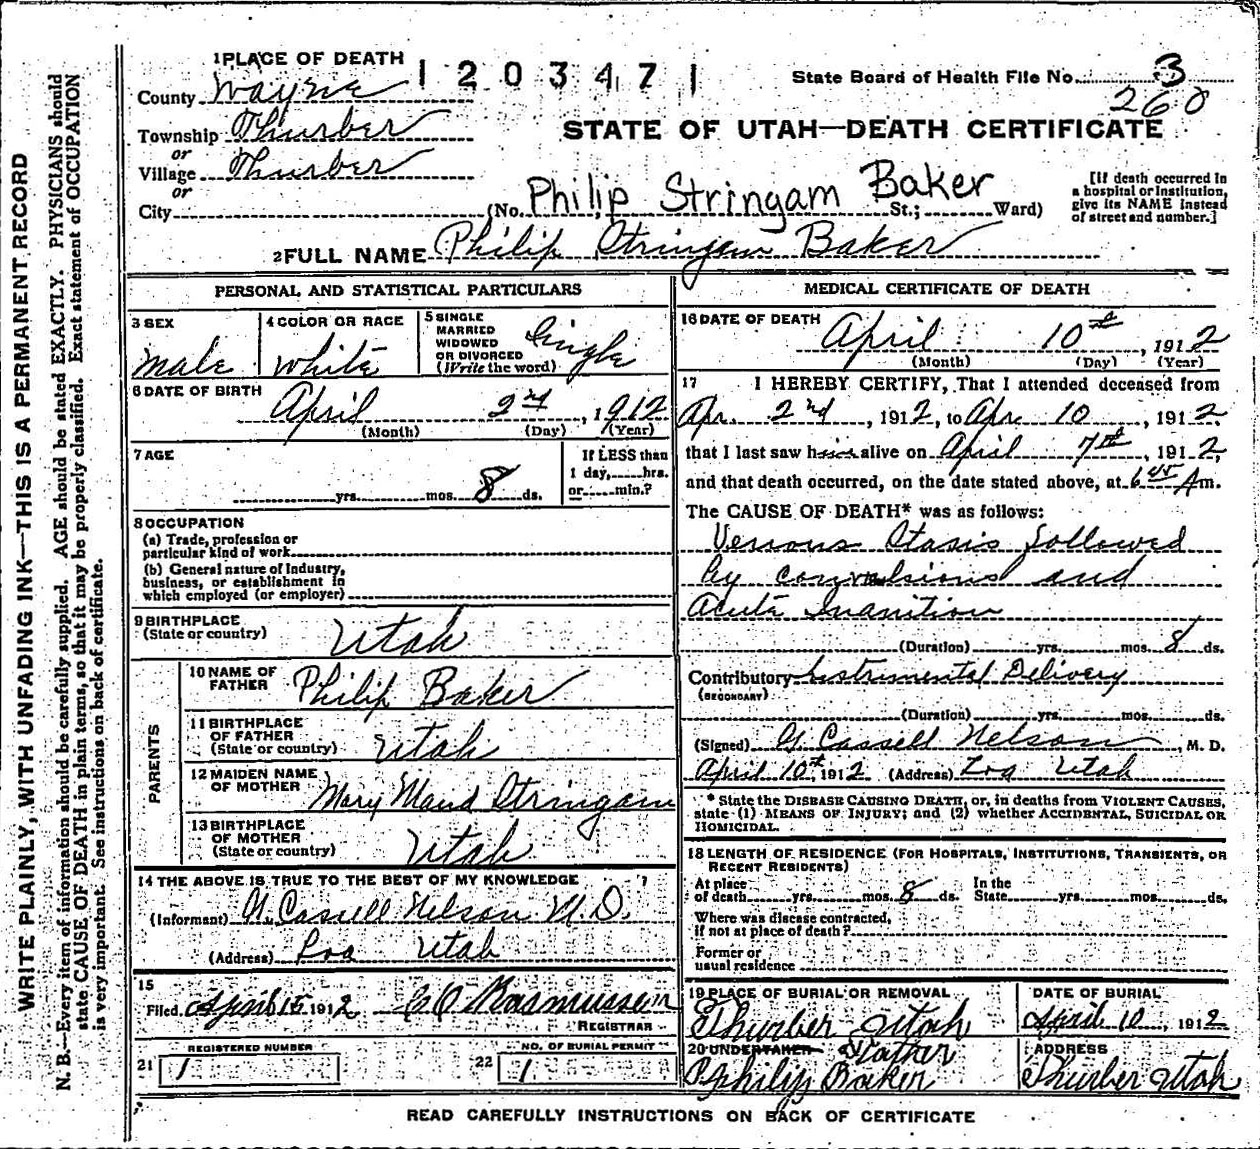 1 PLACE OF DEATH
1203471
State Board of Health File No. 3
260
County Wayne
Township Thurber
or
Village Thurber
or
City
STATE OF UTAH—DEATH CERTIFICATE
(No. Philip Stringam Baker St.; Ward)
[If death occurred in
a hospital or institution,
give its NAME instead
of street and number.]
2 FULL NAME Philip Stringam Baker
PERSONAL AND STATISTICAL PARTICULARS
3 SEX
male
4 COLOR OR RACE
white
5 SINGLE
MARRIED
WIDOWED
OR DIVORCED
(Write the word)
Single
6 DATE OF BIRTH
April 2nd, 1912
(Month) (Day) (Year)
7 AGE
yrs. mos. 8 ds.
If LESS than
1 day, hrs.
or min.?
8 OCCUPATION
(a) Trade, profession or
particular kind of work
(b) General nature of industry,
business, or establishment in
which employed (or employer)
9 BIRTHPLACE
(State or country)
Utah
PARENTS
10 NAME OF
FATHER
Philip Baker
11 BIRTHPLACE
OF FATHER
(State or country)
Utah
12 MAIDEN NAME
OF MOTHER
Mary Maud Stringam
13 BIRTHPLACE
OF MOTHER
(State or country)
Utah
14 THE ABOVE IS TRUE TO THE BEST OF MY KNOWLEDGE
(Informant) Cassell Nelson M.D.
(Address) Loa Utah
15
Filed April 15 1912 Rasmussen
REGISTRAR
REGISTERED NUMBER
21 1
NO. OF BURIAL PERMIT
22 1
MEDICAL CERTIFICATE OF DEATH
16 DATE OF DEATH
April 10th, 1912
(Month) (Day) (Year)
17 I HEREBY CERTIFY, That I attended deceased from
Apr. 2nd, 1912, to Apr 10, 1912
that I last saw him alive on April 7th, 1912,
and that death occurred, on the date stated above, at 6 45 A m.
The CAUSE OF DEATH* was as follows:
Venous Stasis followed
by convulsions and
Acute Inanition
(Duration) yrs. mos. 8 ds.
Contributory Instrumental Delivery
(SECONDARY)
(Duration) yrs. mos. ds.
(Signed) Cassell Nelson, M. D.
April 10th, 1912 (Address) Loa Utah
* State the DISEASE CAUSING DEATH, or, in deaths from VIOLENT CAUSES,
state (1) MEANS OF INJURY; and (2) whether ACCIDENTAL, SUICIDAL OR
HOMICIDAL.
18 LENGTH OF RESIDENCE (FOR HOSPITALS, INSTITUTIONS, TRANSIENTS, OR
RECENT RESIDENTS)
At place
of death yrs. mos. 8 ds.
In the
State yrs. mos. ds.
Where was disease contracted,
if not at place of death?
Former or
usual residence
19 PLACE OF BURIAL OR REMOVAL
Thurber Utah
DATE OF BURIAL
April 10, 1912
20 UNDERTAKER Father
Philip Baker
ADDRESS
Thurber Utah
READ CAREFULLY INSTRUCTIONS ON BACK OF CERTIFICATE
WRITE PLAINLY, WITH UNFADING INK—THIS IS A PERMANENT RECORD
N. B.—Every item of information should be carefully supplied. AGE should be stated EXACTLY. PHYSICIANS should
state CAUSE OF DEATH in plain terms, so that it may be properly classified. Exact statement of OCCUPATION
is very important. See instructions on back of certificate.